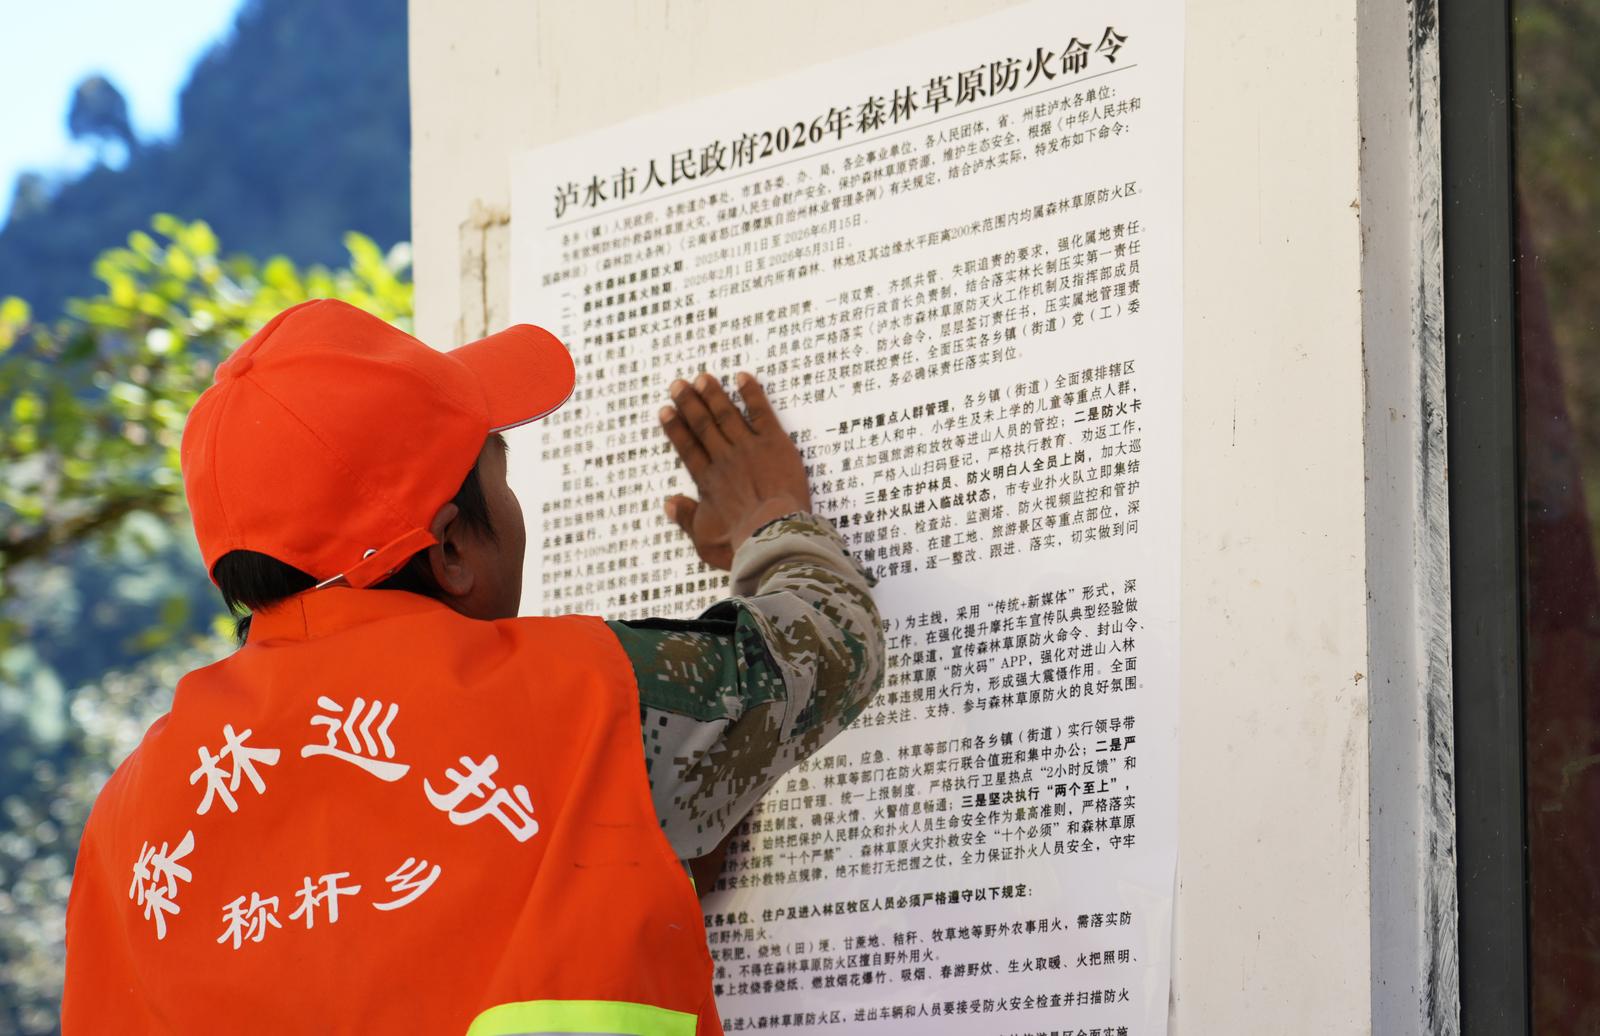 泸水市人民政府2026年森林草原防火命令
各乡(镇)人民政府,各街道办事处,市直各委、办、局,各企事业单位,各人民团体,省、州驻泸水各单位:
为有效预防和扑救森林草原火灾,保障人民生命财产安全,保护森林草原资源,维护生态安全,根据《中华人民共和
国森林法》《森林防火条例》《云南省怒江傈僳族自治州林业管理条例》有关规定,结合泸水实际,特发布如下命令:
一、全市森林草原防火期。2025年11月1日至2026年6月15日。
二、森林草原高火险期。2026年2月1日至2026年5月31日。
三、泸水市森林草原防火区。本行政区域内所有森林、林地及其边缘水平距离200米范围内均属森林草原防火区。
严格落实防灭火工作责任制
乡镇(街道)、各成员单位要严格按照党政同责、一岗双责、齐抓共管、失职追责的要求,强化属地责任。
乡镇(街道)防灭火工作责任机制,严格执行地方政府行政首长负责制,结合落实林长制压实第一责任
草原火灾防控责任。各乡镇(街道)、成员单位严格落实《泸水市森林草原防灭火工作机制及指挥部成员
单位职责》,按照职责分工
严格落实各级林长令、防火命令,层层签订责任书,压实属地管理责
任、细化行业监管责任
位主体责任及联防联控责任,全面压实各乡镇(街道)党(工)委
和政府领导、行业主管部
“五个关键人”责任,务必确保责任落实到位。
五、严格管控野外火源
管控。一是严格重点人群管理,各乡镇(街道)全面摸排辖区
即日起,全市防灭火力量
林区70岁以上老人和中、小学生及未上学的儿童等重点人群,
森林防火特殊人群5种人(痴、
制度,重点加强旅游和放牧等进山人员的管控;二是防火卡
全面加强特殊人群的重点
火检查站,严格入山扫码登记,严格执行教育、劝返工作,
点全面运行,各乡镇(街
下林外;三是全市护林员、防火明白人全员上岗,加大巡
严格五个100%的野外火源管理
四是专业扑火队进入临战状态,市专业扑火队立即集结
防护林人员巡查频度、密度和力
全市瞭望台、检查站、监测塔、防火视频监控和管护
开展实战化训练和带装巡护;五是
区输电线路、在建工地、旅游景区等重点部位,深
站全面运行;六是全覆盖开展隐患排查
化管理,逐一整改、跟进、落实,切实做到问
号)为主线,采用“传统+新媒体”形式,深
工作。在强化提升摩托车宣传队典型经验做
媒介渠道,宣传森林草原防火命令、封山令、
森林草原“防火码”APP,强化对进山入林
农事违规用火行为,形成强大震慑作用。全面
全社会关注、支持、参与森林草原防火的良好氛围。
防火期间,应急、林草等部门和各乡镇(街道)实行领导带
应急、林草等部门在防火期实行联合值班和集中办公;二是严
实行归口管理、统一上报制度。严格执行卫星热点“2小时反馈”和
息报送制度,确保火情、火警信息畅通;三是坚决执行“两个至上”,
告诫,始终把保护人民群众和扑火人员生命安全作为最高准则,严格落实
扑火指挥“十个严禁”、森林草原火灾扑救安全“十个必须”和森林草原
安全扑救特点规律,绝不能打无把握之仗,全力保证扑火人员安全,守牢
区各单位、住户及进入林区牧区人员必须严格遵守以下规定:
切野外用火。
灰积肥,烧地(田)埂、甘蔗地、秸秆、牧草地等野外农事用火,需落实防
准,不得在森林草原防火区擅自野外用火。
事上坟烧香烧纸、燃放烟花爆竹、吸烟、春游野炊、生火取暖、火把照明、
品进入森林草原防火区,进出车辆和人员要接受防火安全检查并扫描防火
森林巡护
称杆乡